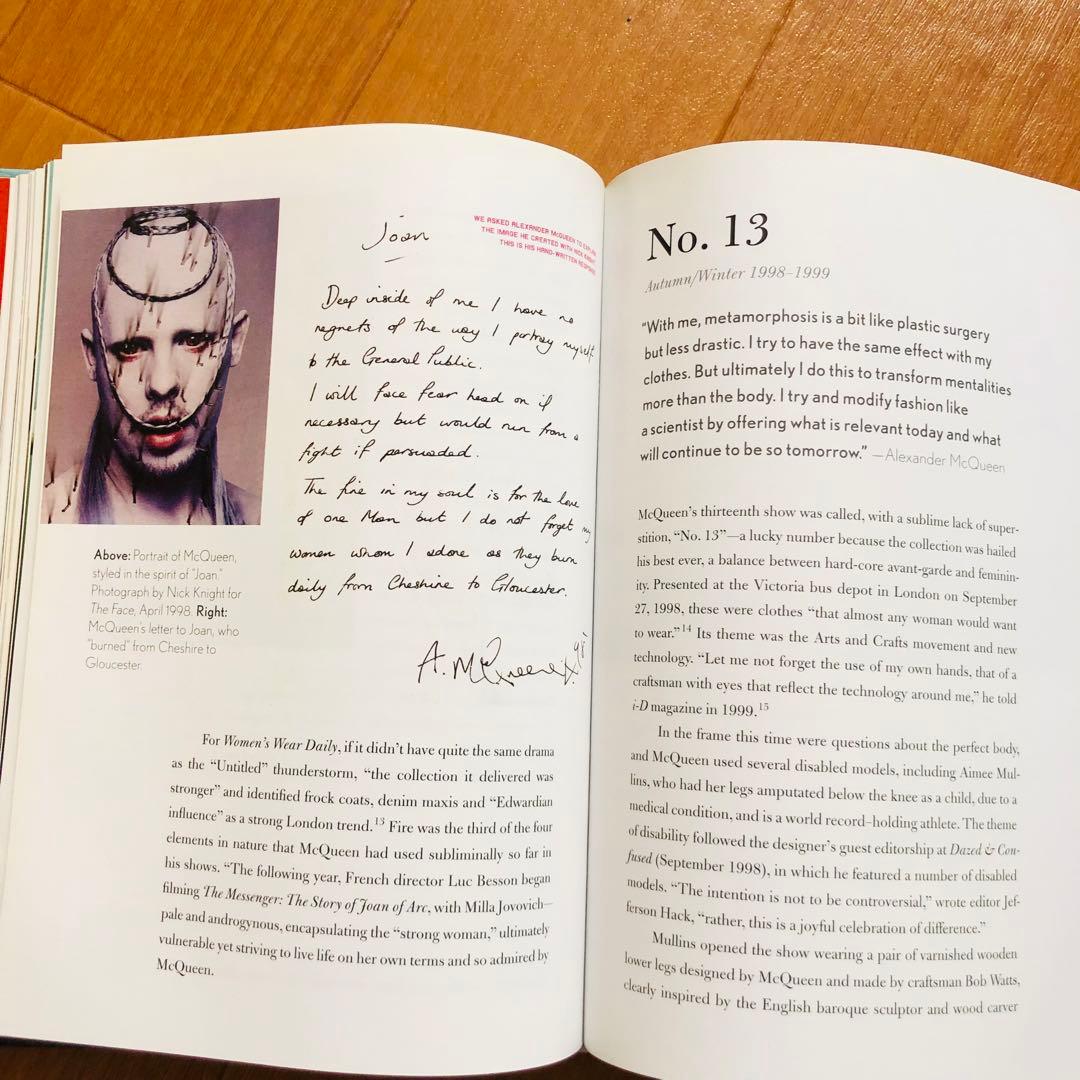 Joan
WE ASKED ALEXANDER McQUEEN TO EXPLAIN
THE IMAGE HE CREATED WITH NICK KNIGHT
THIS IS HIS HAND-WRITTEN RESPONSE
Deep inside of me I have no
regrets of the way I portray myself
to the General Public.
I will face fear head on if
necessary but would run from a
fight if persuaded.
The fire in my soul is for the love
of one Man but I do not forget my
women whom I adore as they burn
daily from Cheshire to Gloucester.
A. McQueen 98
Above: Portrait of McQueen,
styled in the spirit of "Joan."
Photograph by Nick Knight for
The Face, April 1998. Right:
McQueen's letter to Joan, who
"burned" from Cheshire to
Gloucester.
For Women's Wear Daily, if it didn't have quite the same drama
as the "Untitled" thunderstorm, "the collection it delivered was
stronger" and identified frock coats, denim maxis and "Edwardian
influence" as a strong London trend.13 Fire was the third of the four
elements in nature that McQueen had used subliminally so far in
his shows. "The following year, French director Luc Besson began
filming The Messenger: The Story of Joan of Arc, with Milla Jovovich—
pale and androgynous, encapsulating the "strong woman," ultimately
vulnerable yet striving to live life on her own terms and so admired by
McQueen.
No. 13
Autumn/Winter 1998–1999
"With me, metamorphosis is a bit like plastic surgery
but less drastic. I try to have the same effect with my
clothes. But ultimately I do this to transform mentalities
more than the body. I try and modify fashion like
a scientist by offering what is relevant today and what
will continue to be so tomorrow." —Alexander McQueen
McQueen's thirteenth show was called, with a sublime lack of super-
stition, "No. 13"—a lucky number because the collection was hailed
his best ever, a balance between hard-core avant-garde and feminin-
ity. Presented at the Victoria bus depot in London on September
27, 1998, these were clothes "that almost any woman would want
to wear."14 Its theme was the Arts and Crafts movement and new
technology. "Let me not forget the use of my own hands, that of a
craftsman with eyes that reflect the technology around me," he told
i-D magazine in 1999.15
In the frame this time were questions about the perfect body,
and McQueen used several disabled models, including Aimee Mul-
lins, who had her legs amputated below the knee as a child, due to a
medical condition, and is a world record–holding athlete. The theme
of disability followed the designer's guest editorship at Dazed & Con-
fused (September 1998), in which he featured a number of disabled
models. "The intention is not to be controversial," wrote editor Jef-
ferson Hack, "rather, this is a joyful celebration of difference."
Mullins opened the show wearing a pair of varnished wooden
lower legs designed by McQueen and made by craftsman Bob Watts,
clearly inspired by the English baroque sculptor and wood carver